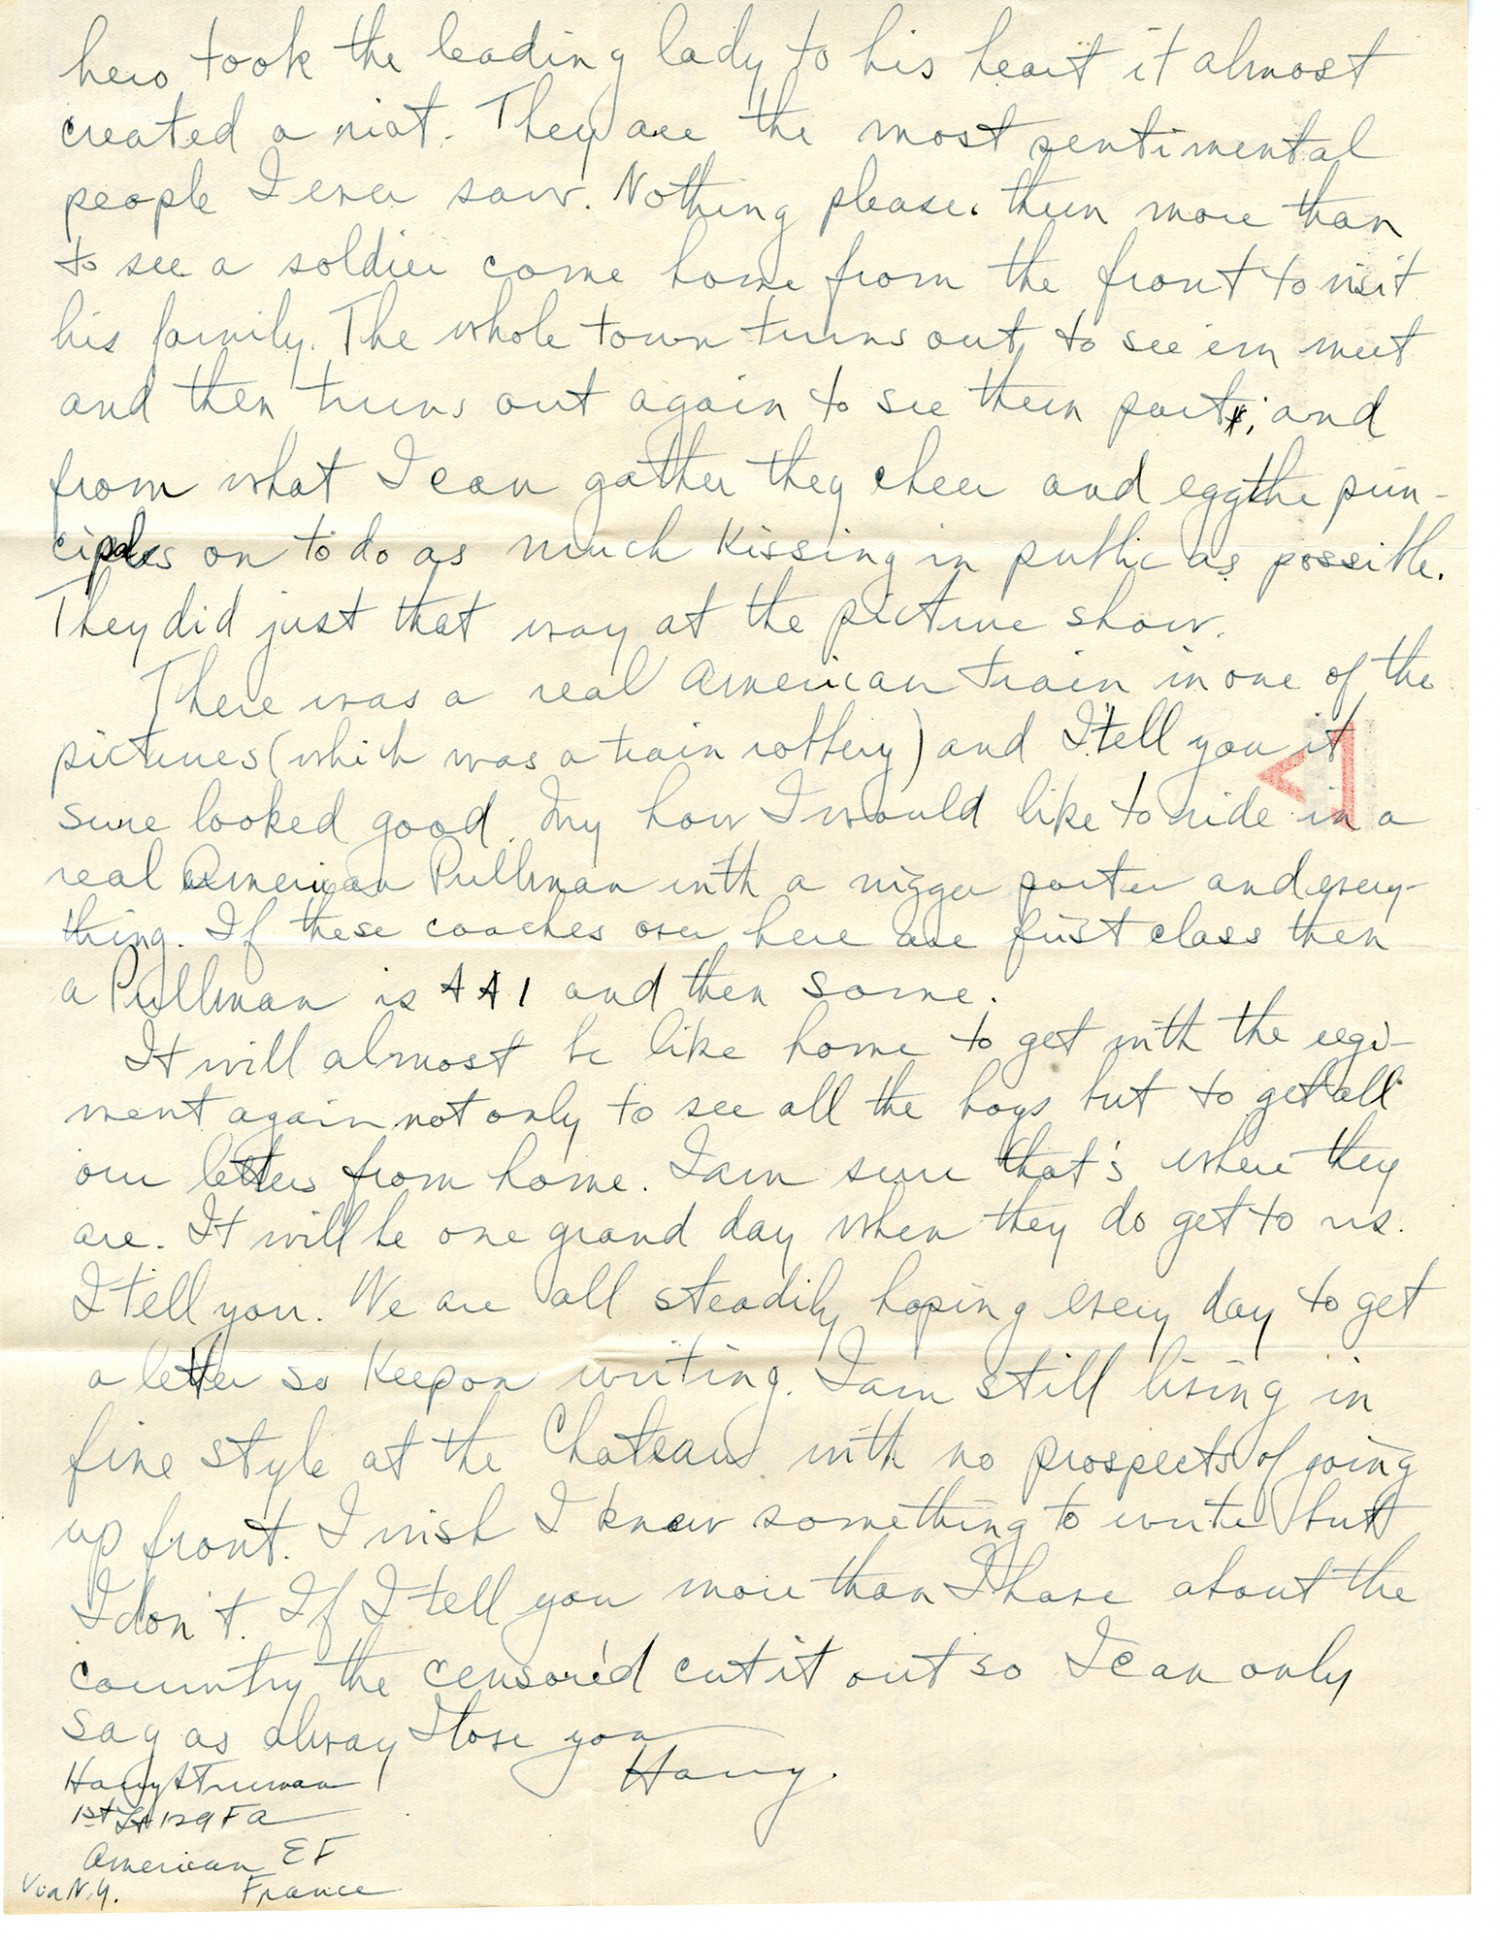 hero took the leading lady to his heart it almost
created a riot. They are the most sentimental
people I ever saw. Nothing please. them more than
to see a soldier come home from the front to visit
his family. The whole town turns out to see em meet
and then turns out again to see them part, and
from what I can gather they cheer and egg the prin-
cipals on to do as much kissing in public as possible.
They did just that way at the picture show.
There was a real American train in one of the
pictures (which was a train robbery) and I tell you it
sure looked good. My how I would like to ride in a
real American Pullman with a nigger porter and every-
thing. If these coaches over here are first class then
a Pullman is AA1 and then some.
It will almost be like home to get with the regi-
ment again not only to see all the boys but to get all
our letters from home. I am sure that's where they
are. It will be one grand day when they do get to us.
I tell you. We are all steadily hoping every day to get
a letter so keep on writing. I am still living in
fine style at the Chateau with no prospects of going
up front. I wish I knew something to write but
I don't. If I tell you more than I have about the
country the censore'd cut it out so I can only
say as alway I love you
Harry.
Harry S Truman
1st Lt 129 FA
American EF
Via N.Y. France